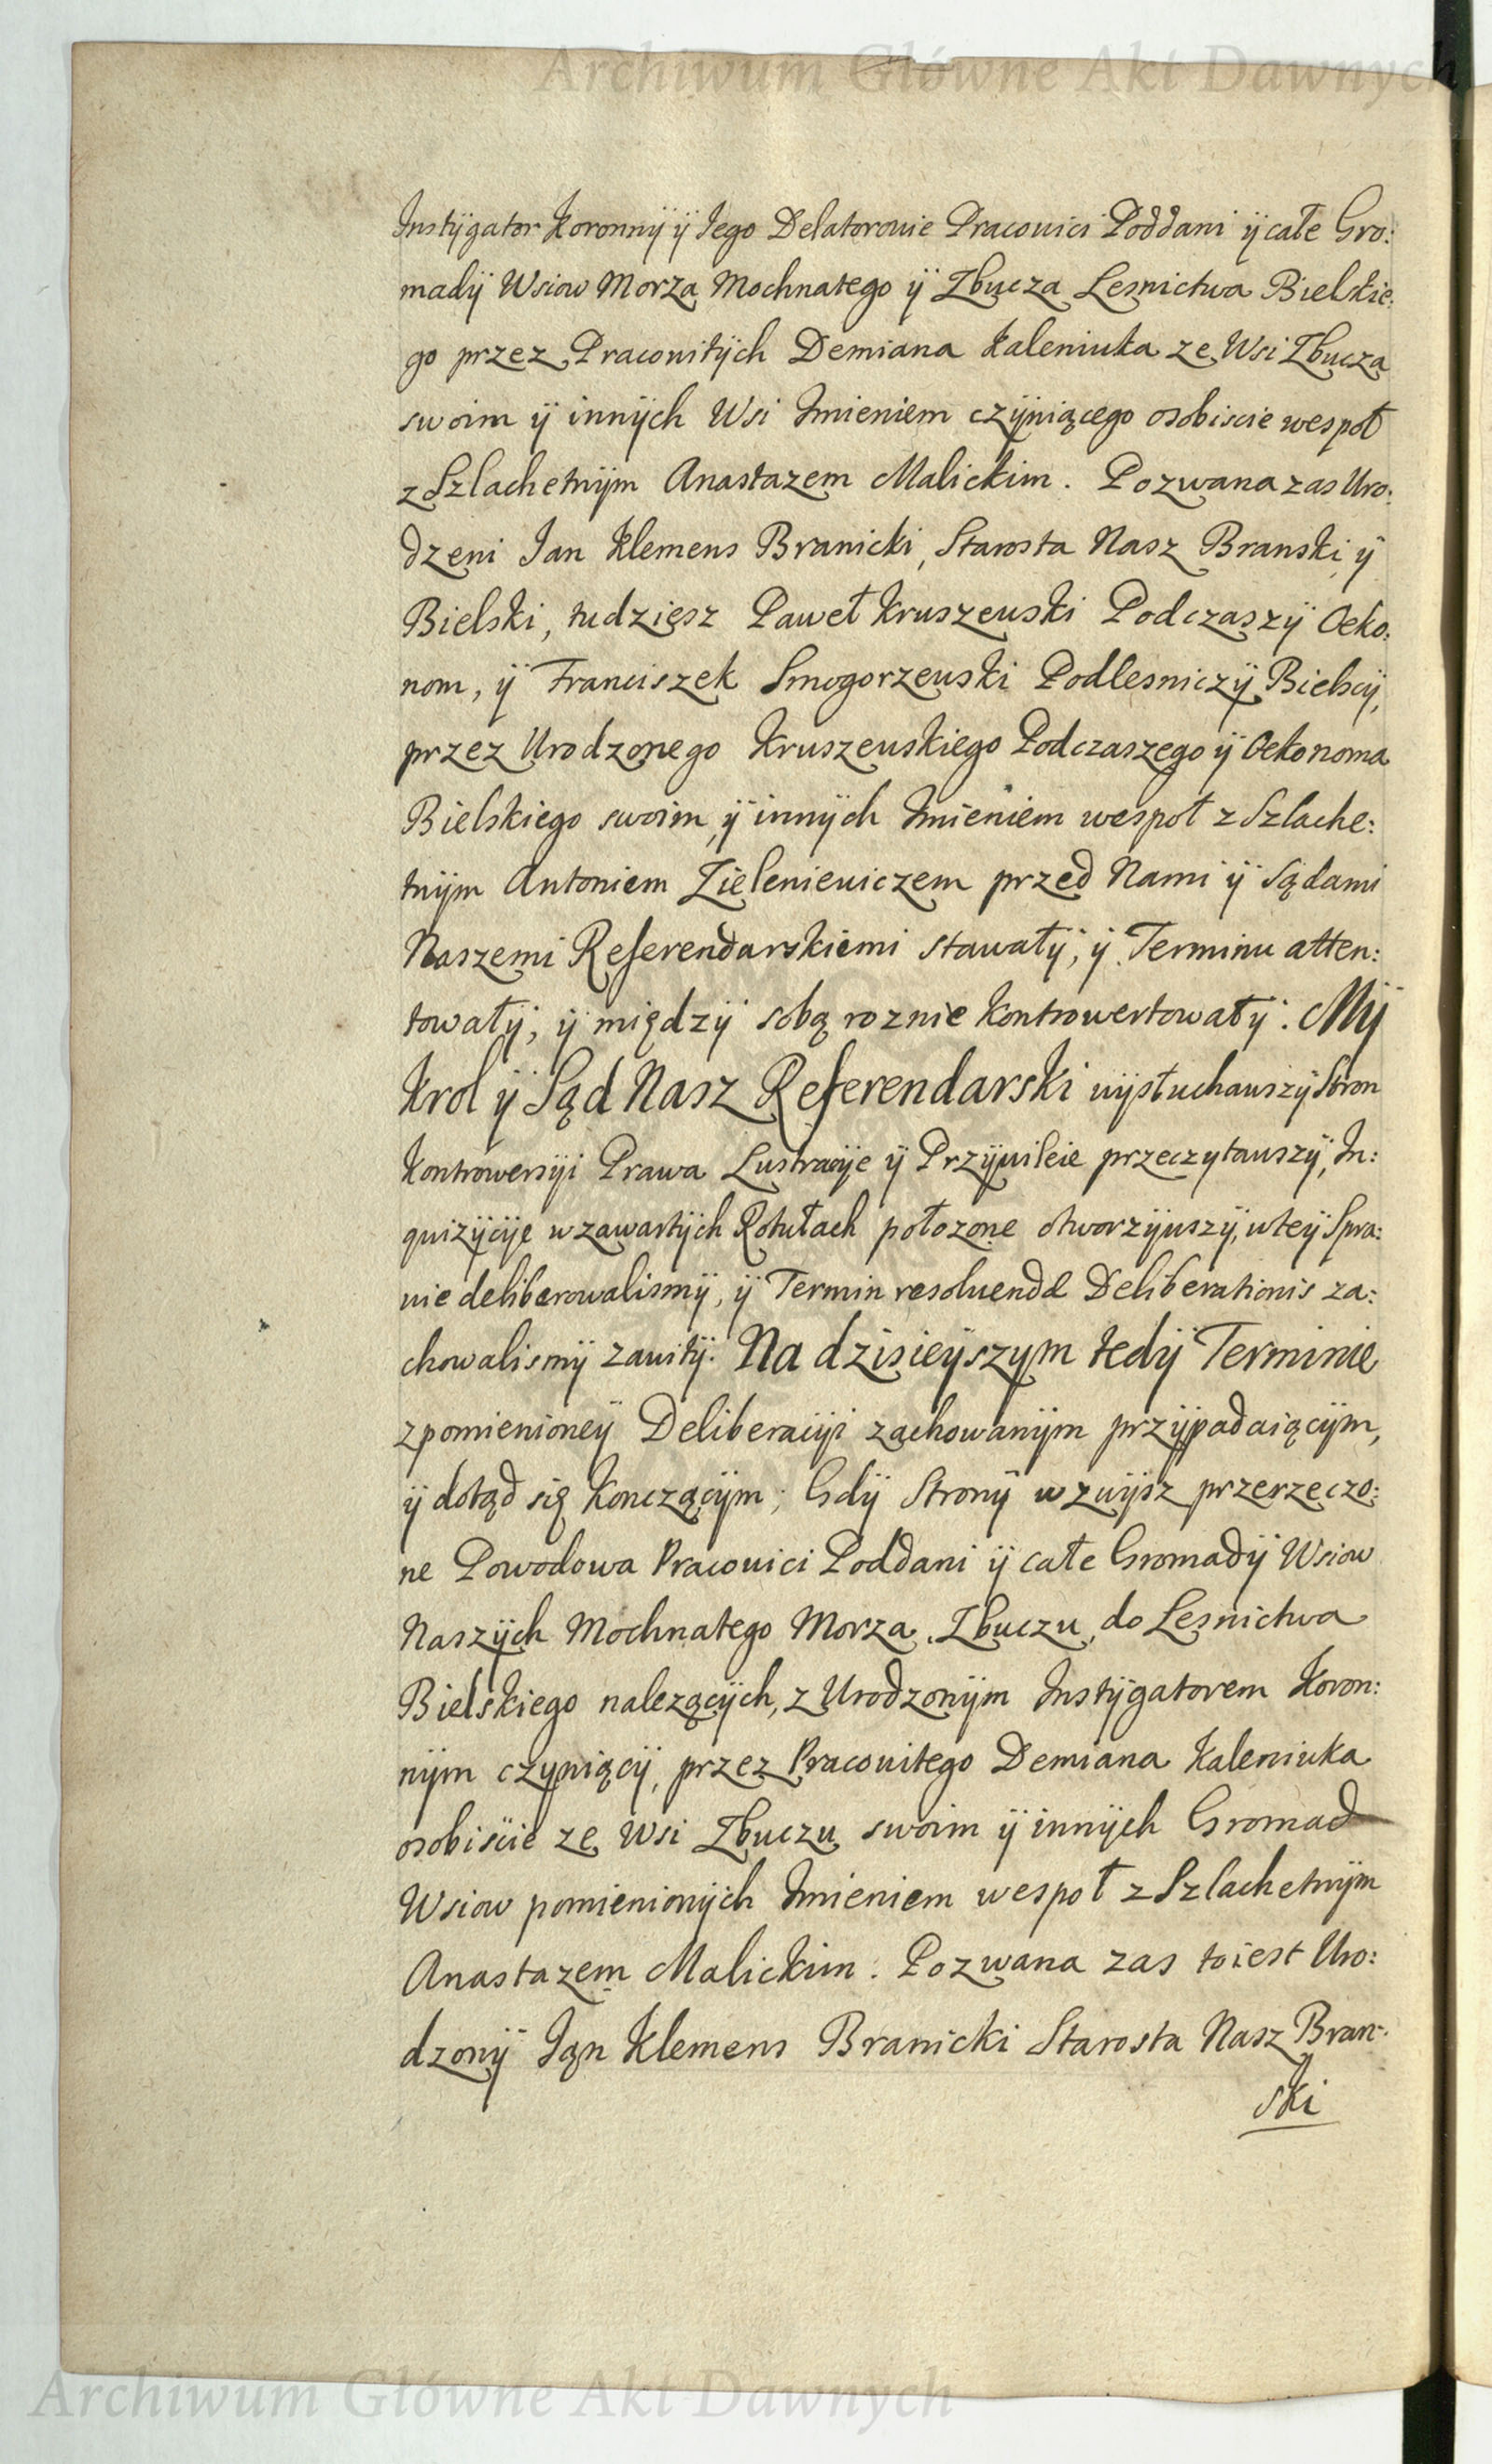 Archiwum Główne Akt Dawnych
Instÿgator Koronnÿ ÿ Jego Delatorowie Pracowici Poddani ÿ całe Gro:
madÿ Wsiow Morza Mochnatego ÿ Zbucza Lesnictwa Bielskie:
go przez Pracowitÿch Demiana Kaleniuka ze Wsi Zbucza
swoim ÿ innÿch Wsi Imieniem czÿniącego osobiscie wespoł
z Szlachetnÿm Anastazem Malickim. Pozwana zas Uro:
dzeni Jan Klemens Branicki, Starosta Nasz Branski, ÿ
Bielski, tudziesz Paweł Kruszewski Podczaszÿ Oeko:
nom, ÿ Franciszek Smogorzewski Podlesniczÿ Bielscÿ,
przez Urodzonego Kruszewskiego Podczaszego ÿ Oekonoma
Bielskiego swoim, ÿ innÿch Imieniem wespoł z Szlache:
tnÿm Antoniem Zieleniewiczem przed Nami ÿ Sądami
Naszemi Referendarskiemi stawałÿ, ÿ Terminu atten:
towałÿ, ÿ międzÿ sobą roznie kontrowertowałÿ. Mÿ
Krol ÿ Sąd Nasz Referendarski wÿsłuchawszÿ Stron
Kontrowersÿi Prawa Lustracÿe ÿ Przÿwileie przeczytawszÿ, In:
quizÿcÿe w zawartÿch Rotułach połozone otworzÿwszÿ, w teÿ Spra:
wie deliberowalismÿ, ÿ Termin resolvendæ Deliberationis za:
chowalismÿ zawitÿ. Na dzisieÿszym tedÿ Terminie
z pomienioneÿ Deliberacÿi zachowanÿm przÿpadaiącÿm,
ÿ dotąd się kończącÿm; Gdÿ Stronÿ wzwÿsz przerzeczo:
ne Powodowa Pracowici Poddani ÿ całe Gromadÿ Wsiow
Naszÿch Mochnatego Morza, Zbuczu, do Lesnictwa
Bielskiego nalezącÿch, z Urodzonÿm Instÿgatorem Koron:
nÿm czyniącÿ, przez Pracowitego Demiana Kaleniuka
osobiscie ze Wsi Zbuczu swoim ÿ innÿch Gromad
Wsiow pomienionÿch Imieniem wespoł z Szlachetnÿm
Anastazem Malickim. Pozwana zas toiest Uro:
dzonÿ Jan Klemens Branicki Starosta Nasz Bran:
ski
Archiwum Główne Akt Dawnych